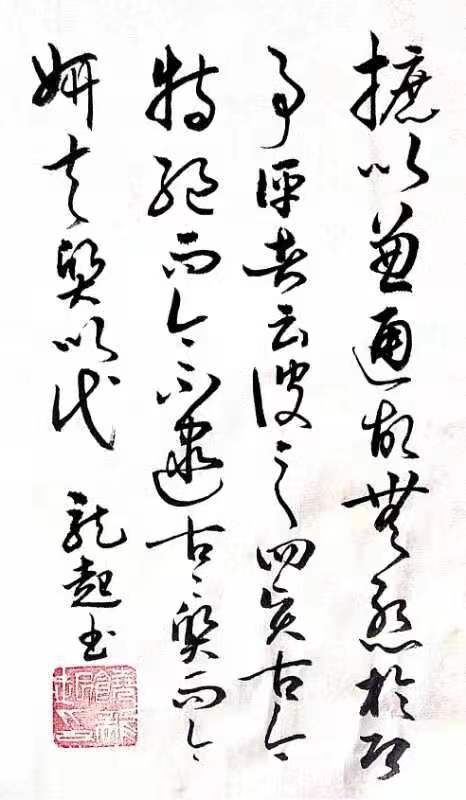 摭以兼通故無慙於即
事評者云彼之四賢古今
特絕而今不逮古〻質而今
妍夫質以代
龍起书